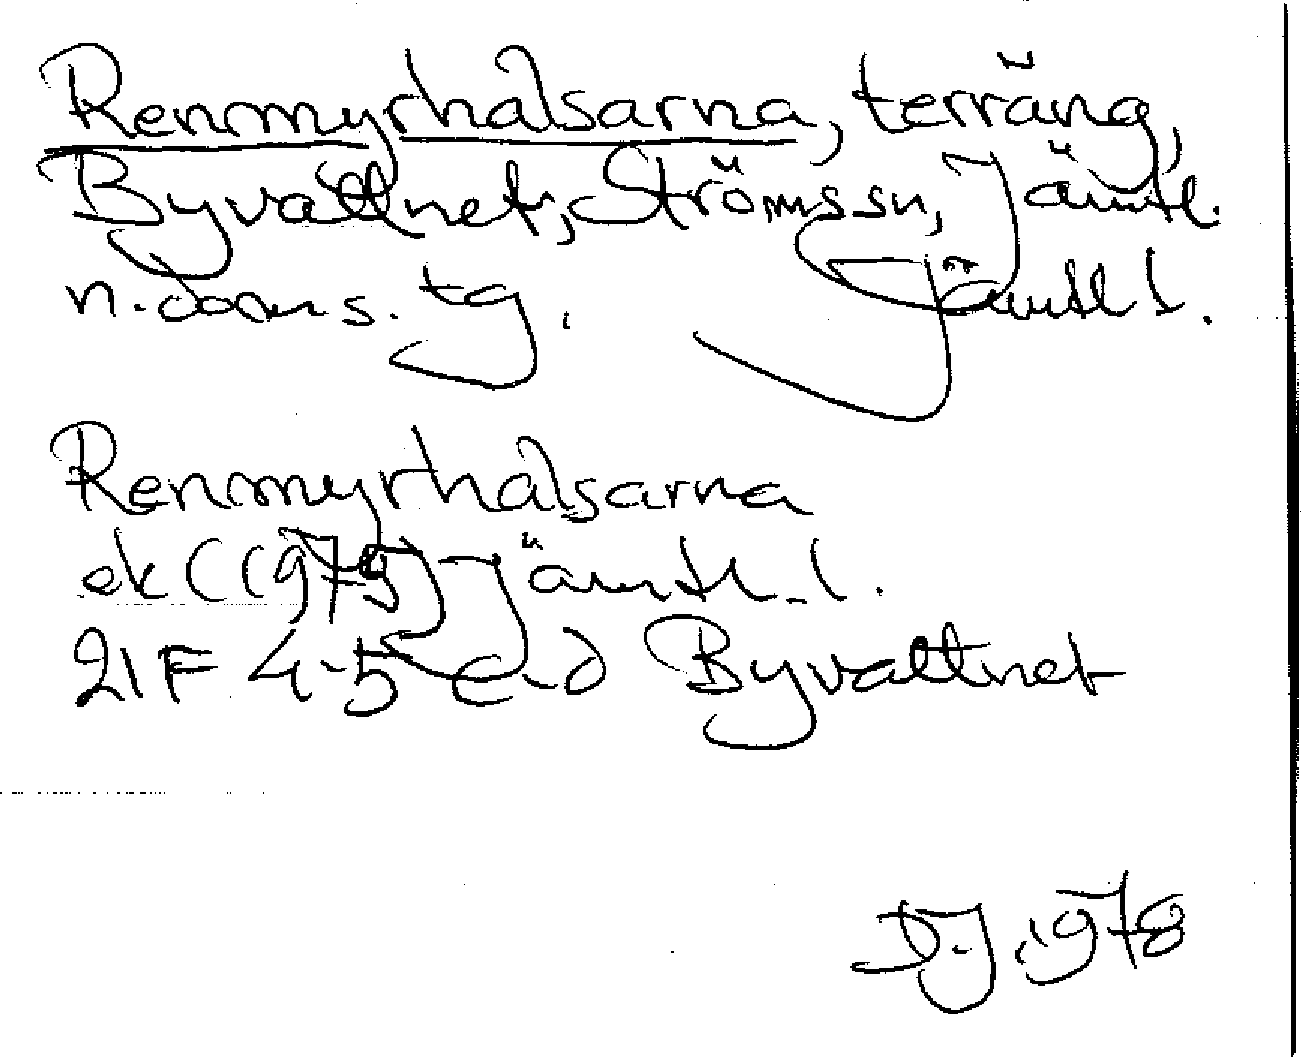 Renmyrhalsarna, terräng,
Byvattnet, Ströms sn, Jämtl.
n. doms. tg. Jämtl l.
Renmyrhalsarna
ek (1979) Jämtl. l.
21F 4-5 c-d Byvattnet
D.J. 1978